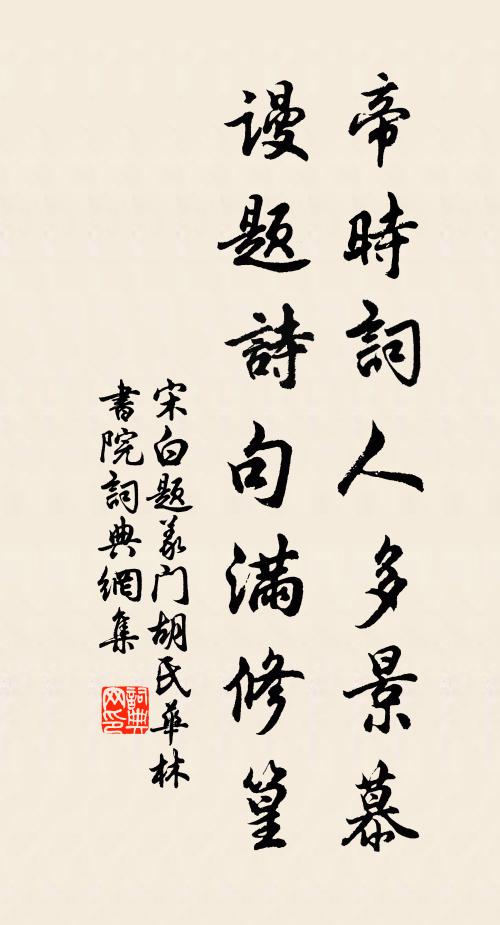 帝時詞人多景慕
谩题詩句滿修篁
宋白题義门胡氏華林
書院詞典網集
詞典网印